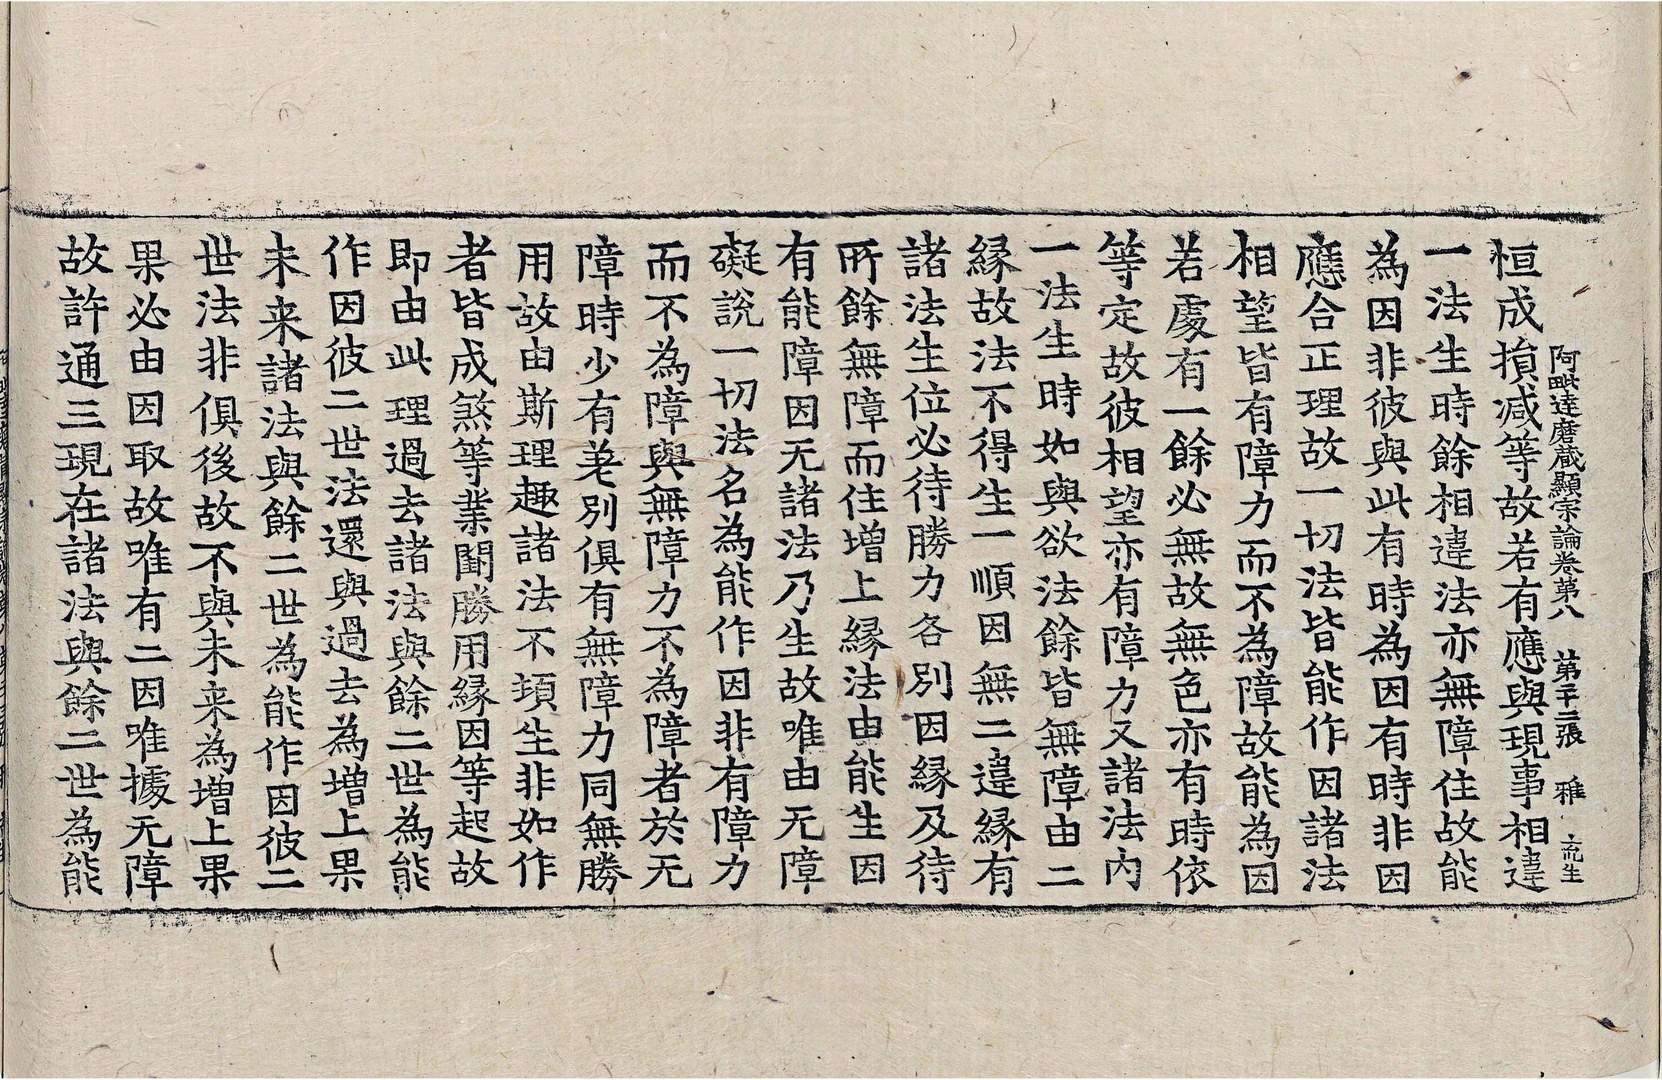 阿毗達磨藏顯宗論卷第八 第二十二張 雅
恒成損減等故若有應與現事相違
一法生時餘相違法亦無障住故能
為因非彼與此有時為因有時非因
應合正理故一切法皆能作因諸法
相望皆有障力而不為障故能為因
若處有一餘必無故無色亦有時依
等定故彼相望亦有障力又諸法內
一法生時如與欲法餘皆無障由二
緣故法不得生一順因無二違緣有
諸法生位必待勝力各別因緣及待
所餘無障而住增上緣法由能生因
有能障因无諸法乃生故唯由无障
礙說一切法名為能作因非有障力
而不為障與無障力不為障者於无
障時少有差別俱有無障力同無勝
用故由斯理趣諸法不頓生非如作
者皆成煞等業闕勝用緣因等起故
即由此理過去諸法與餘二世為能
作因彼二世法還與過去為增上果
未来諸法與餘二世為能作因彼二
世法非俱後故不與未来為增上果
果必由因取故唯有二因唯據无障
故許通三現在諸法與餘二世為能